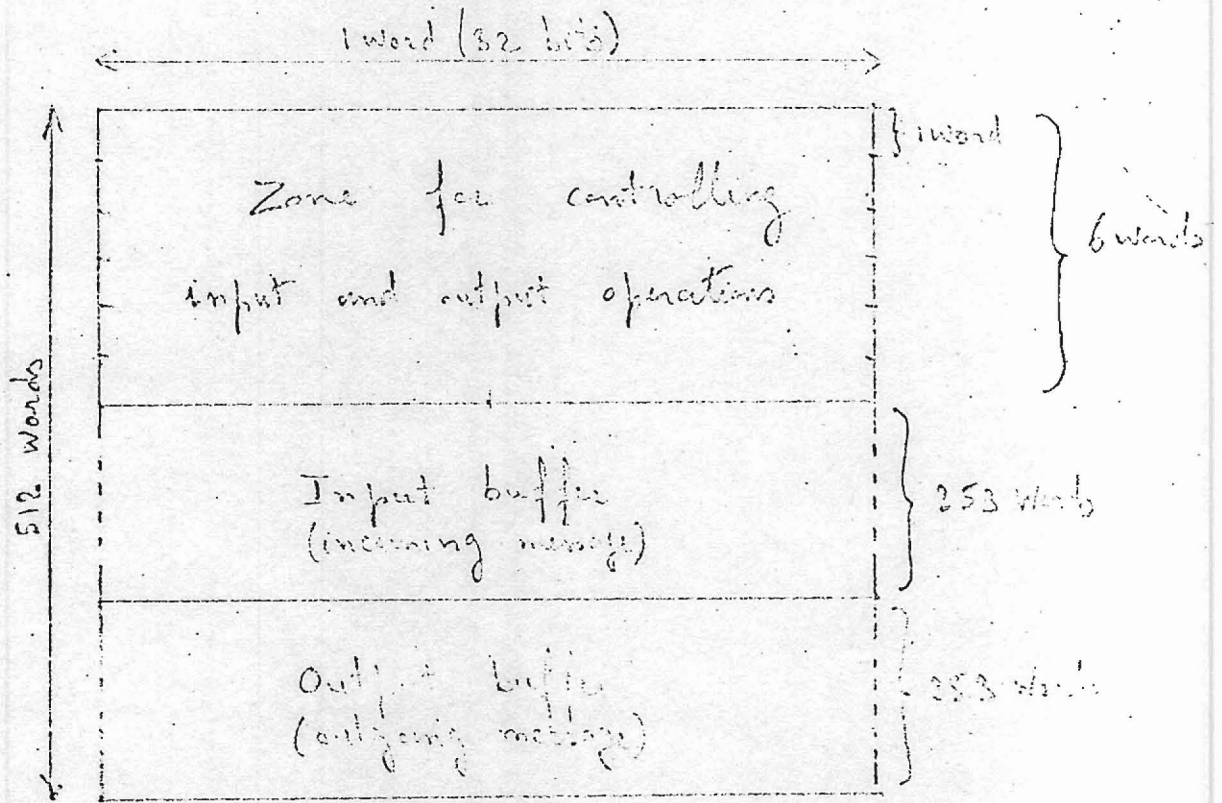 1 word (32 bits)
1 word
Zone for controlling
input and output operations
6 words
512 words
Input buffer
(incoming message)
253 words
Output buffer
(outgoing message)
253 words